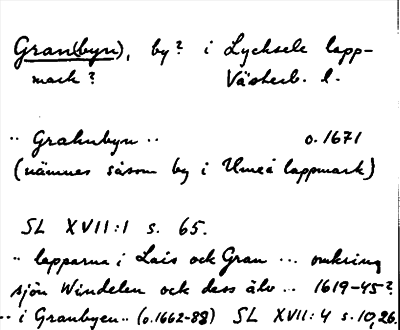 Gran(byn), by? i Lycksele lapp-
mark? Västerb. l.
·· Grahnbyn ·· o. 1671
(nämnes såsom by i Umeå lappmark)
SL XVII:1 s. 65.
·· lapparna i Lais och Gran ··· omkring
sjön Windelen och dess älv ·· 1619-45?
·· i Granbyen ·· (o.1662-88) SL XVII:4 s.10,26.